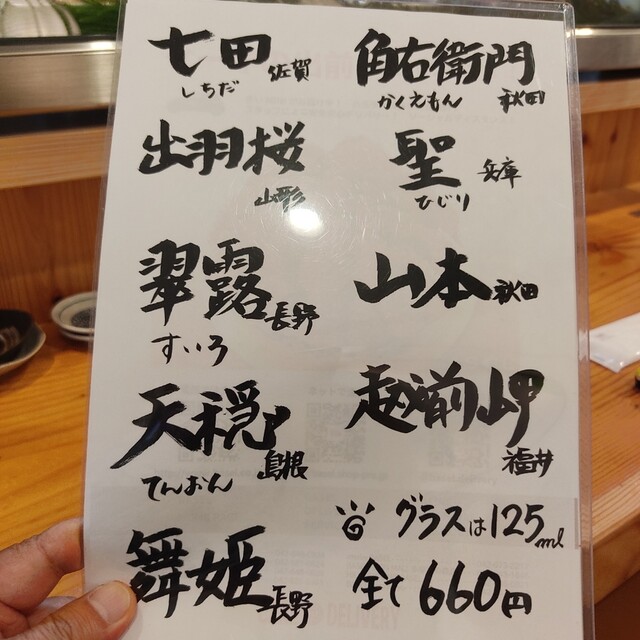 七田 佐賀
しちだ
出羽桜
山形
翠露 長野
すいろ
天穏 島根
てんおん
舞姫 長野
角右衛門
かくえもん 秋田
聖 兵庫
ひじり
山本 秋田
越前岬
福井
グラスは125ml
全て660円
DELIVERY